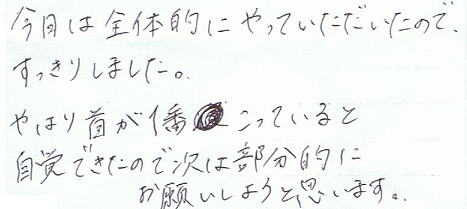 今日は全体的にやっていただいたので、
すっきりしました。
やはり首が1番こっていると
自覚できたので次は部分的に
お願いしようと思います。